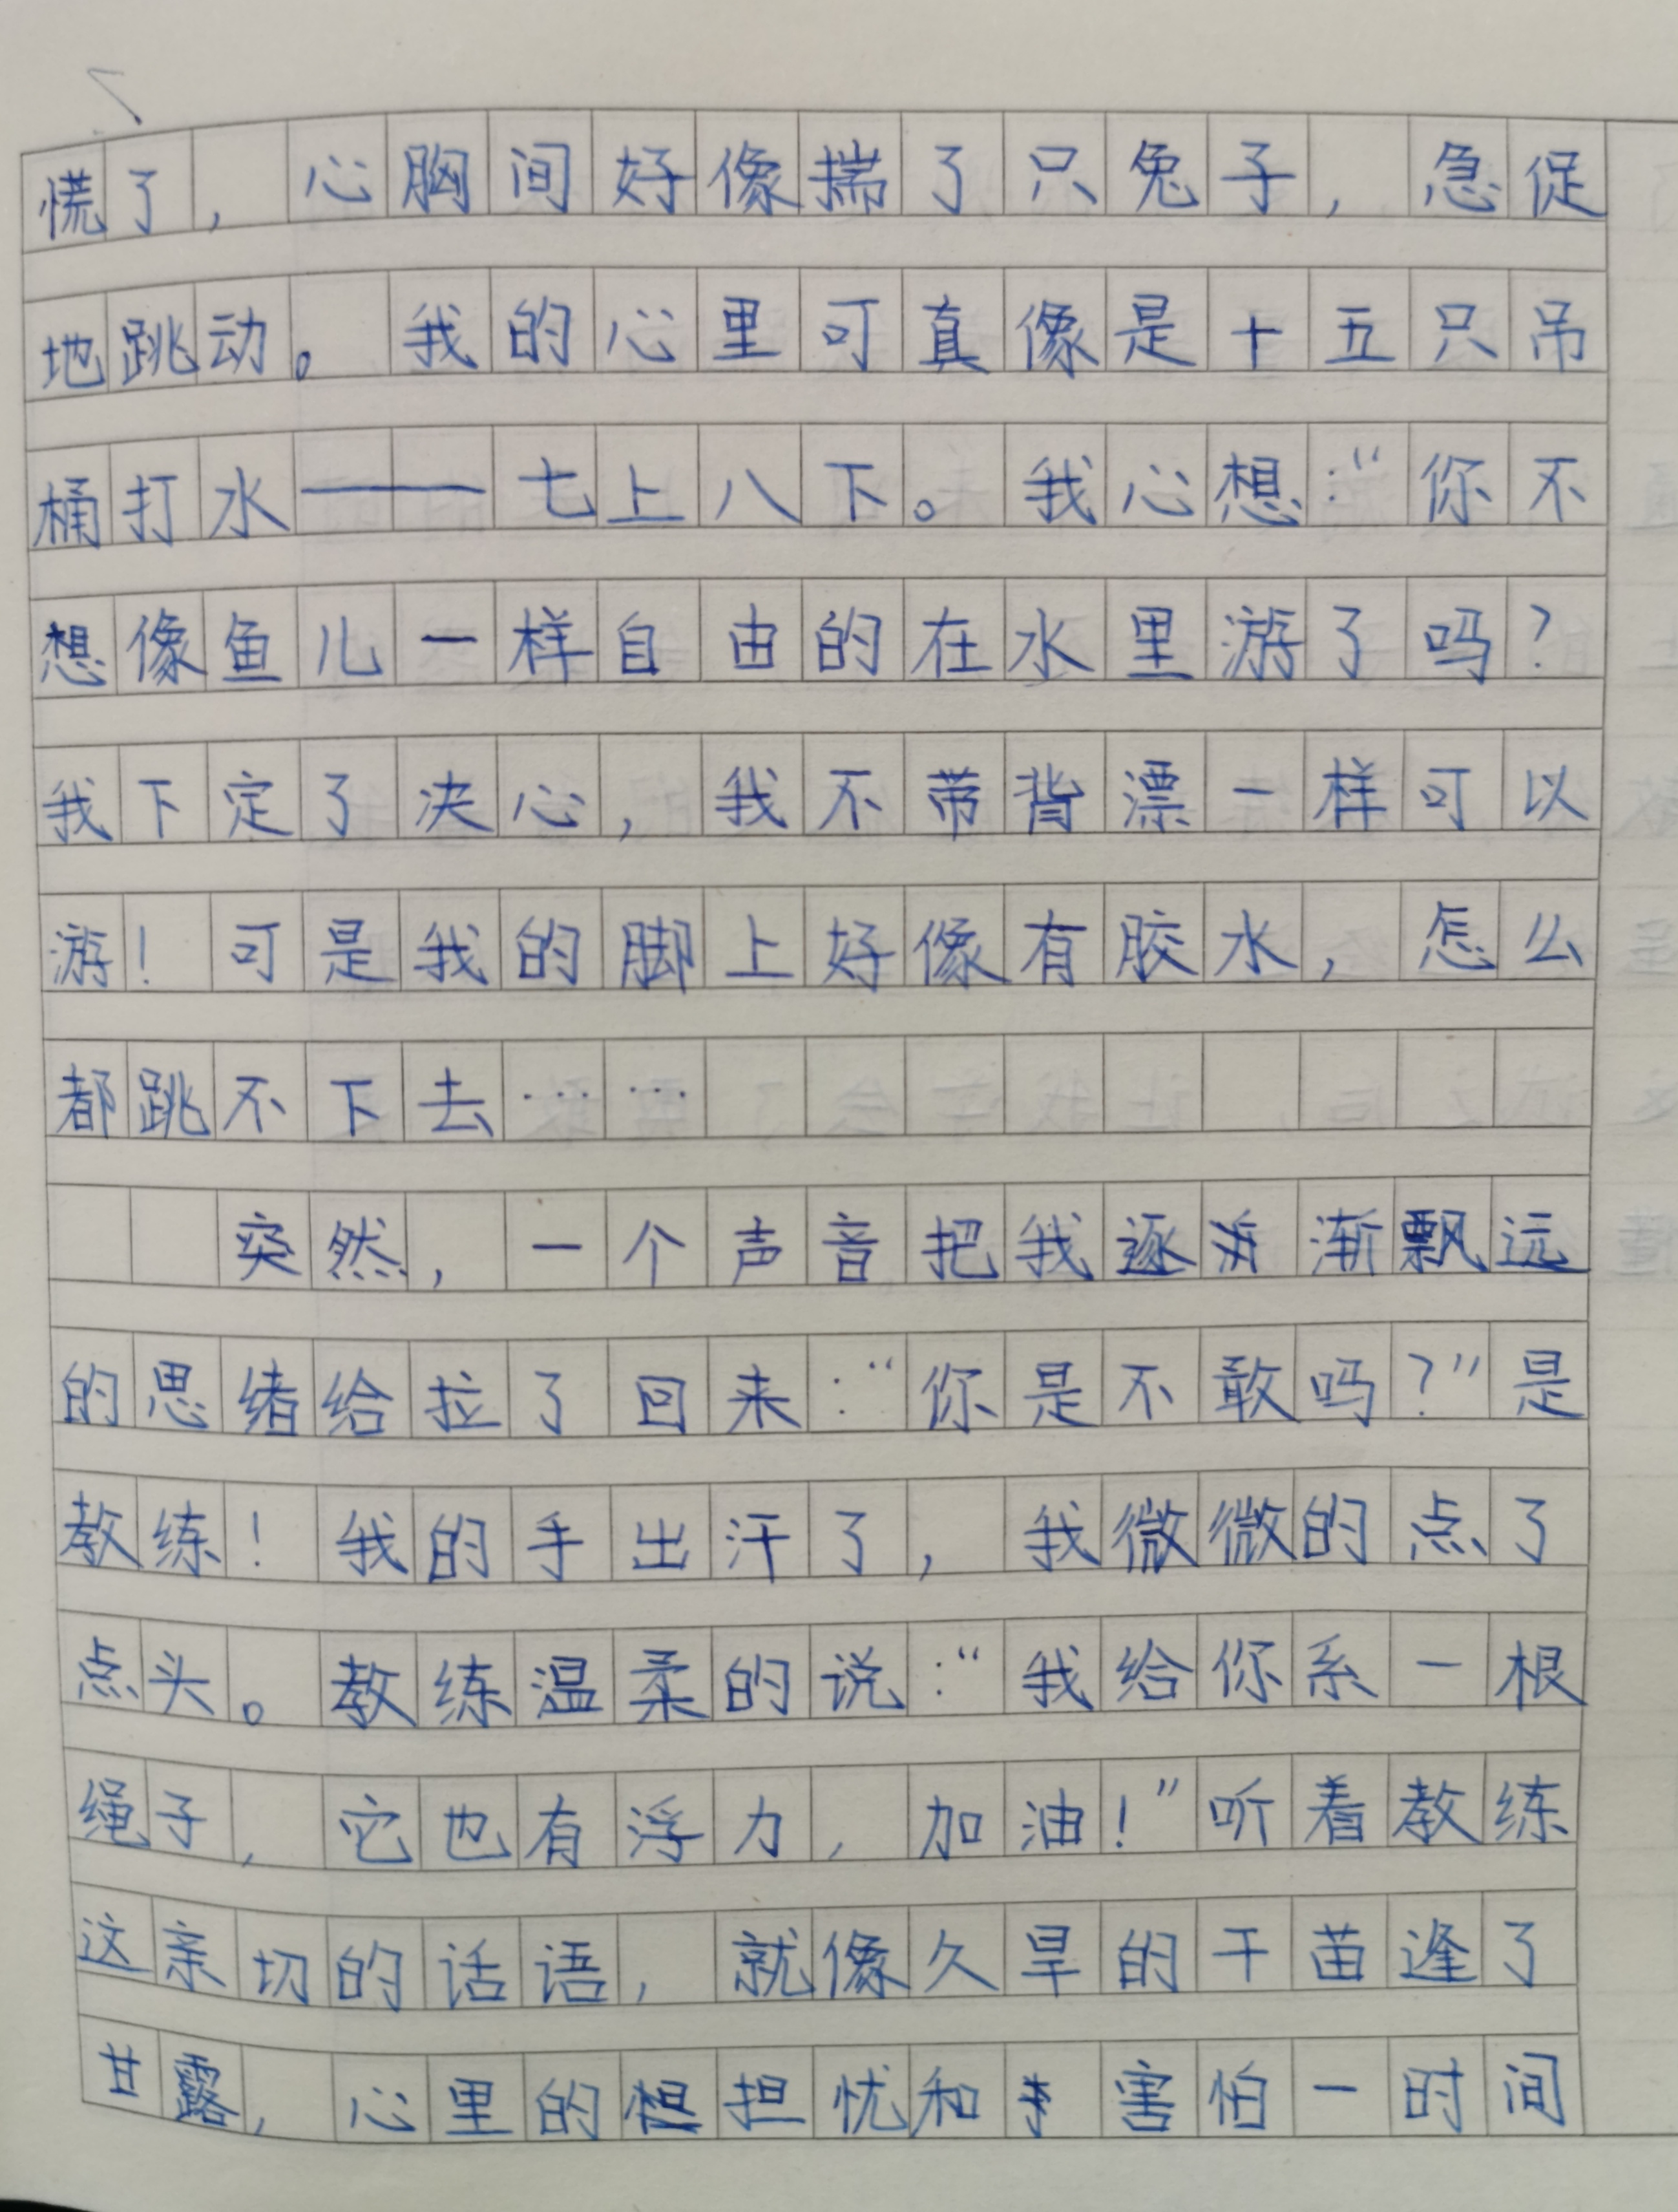 慌了，心胸间好像揣了只兔子，急促
地跳动。我的心里可真像是十五只吊
桶打水——七上八下。我心想：“你不
想像鱼儿一样自由的在水里游了吗？
我下定了决心，我不带背漂一样可以
游！可是我的脚上好像有胶水，怎么
都跳不下去……
突然，一个声音把我逐渐飘远
的思绪给拉了回来：“你是不敢吗？”是
教练！我的手出汗了，我微微的点了
点头。教练温柔的说：“我给你系一根
绳子，它也有浮力，加油！”听着教练
这亲切的话语，就像久旱的干苗逢了
甘露，心里的担忧和害怕一时间